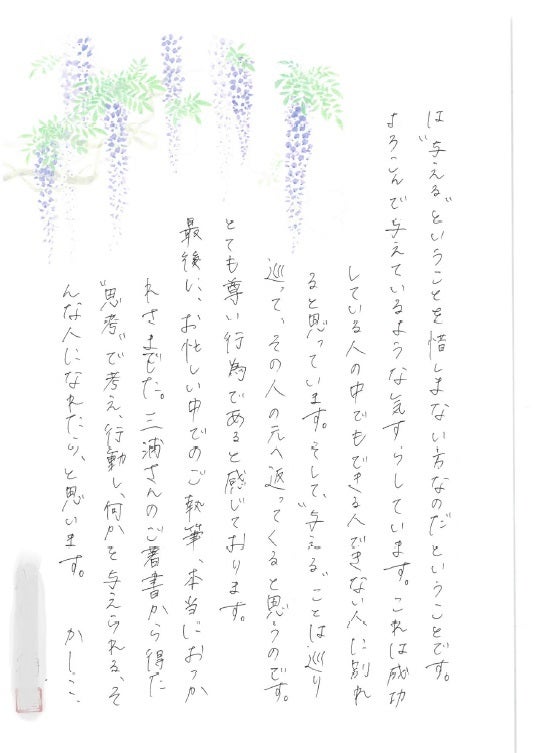 は“与える”ということを惜しまない方なのだということです。
よろこんで与えているような気すらしています。これは成功
している人の中でもできる人できない人に別れ
ると思っています。そして、“与える”ことは巡り
巡って、その人の元へ返ってくると思うのです。
とても尊い行為であると感じております。
最後に、お忙しい中でのご執筆、本当におつか
れさまでした。三浦さんのご著書から得た
“思考”で考え、行動し、何かを与えられる、そ
んな人になれたら、と思います。
かしこ